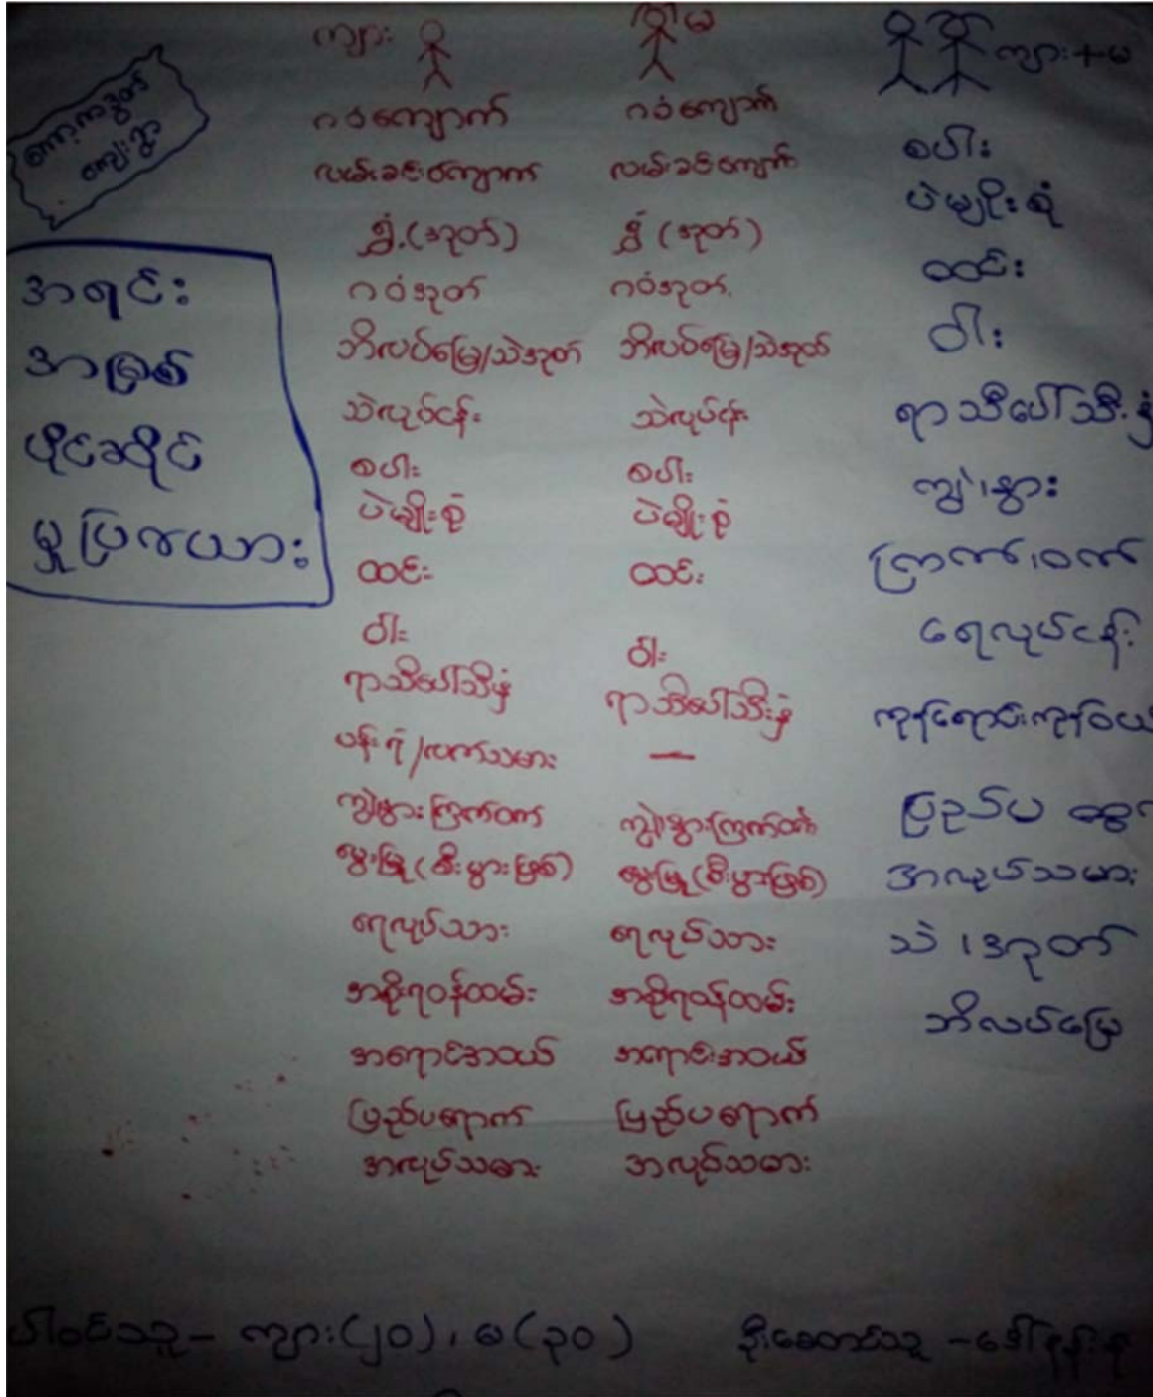 ကျား
မ
ကျား+မ
ကျေးရွာ
အရင်း
အမြစ်
ပိုင်ဆိုင်
မှုပြဇယား
ဂဝံကျောက်
လမ်းခင်းကျောက်
ရွှံ့(အုတ်)
ဂဝံအုတ်
ဘိလပ်မြေ/သဲအုတ်
သဲလုပ်ငန်း
စပါး
ပဲမျိုးစုံ
ထင်း
ဝါး
ရာသီပေါ်သီးနှံ
ပန်းရံ/လက်သမား
ကျွဲ၊နွားကြက်ဝက်
မွေးမြူ(စီးပွားဖြစ်)
ရေလုပ်သား
အစိုးရဝန်ထမ်း
အရောင်းအဝယ်
ပြည်ပရောက်
အလုပ်သမား
ဂဝံကျောက်
လမ်းခင်းကျောက်
ရွှံ့(အုတ်)
ဂဝံအုတ်
ဘိလပ်မြေ/သဲအုတ်
သဲလုပ်ငန်း
စပါး
ပဲမျိုးစုံ
ထင်း
ဝါး
ရာသီပေါ်သီးနှံ
—
ကျွဲ၊နွားကြက်ဝက်
မွေးမြူ(စီးပွားဖြစ်)
ရေလုပ်သား
အစိုးရဝန်ထမ်း
အရောင်းအဝယ်
ပြည်ပရောက်
အလုပ်သမား
စပါး
ပဲမျိုးစုံ
ထင်း
ဝါး
ရာသီပေါ်သီးနှံ
ကျွဲ၊နွား
ကြက်၊ဝက်
ရေလုပ်ငန်း
ကုန်ရောင်းကုန်ဝယ်
ပြည်ပ ထွက်
အလုပ်သမား
သဲ၊အုတ်
ဘိလပ်မြေ
ပါဝင်သူ- ကျား(၂၀)၊ မ(၃၀) ဦးဆောင်သူ -ဒေါ်